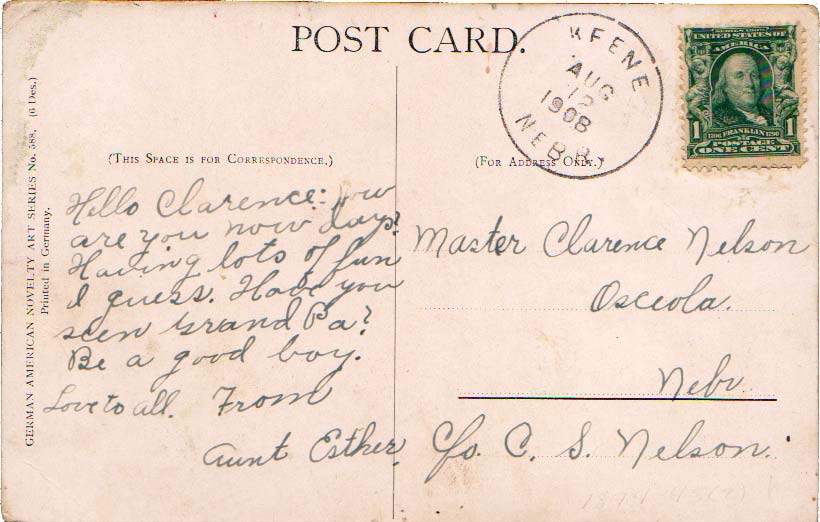 POST CARD.
KEENE
AUG
12
1908
NEBR.
SERIES 1902
UNITED STATES OF
AMERICA
1706 FRANKLIN 1790
1 POSTAGE 1
ONE CENT
(THIS SPACE IS FOR CORRESPONDENCE.)
(FOR ADDRESS ONLY.)
GERMAN AMERICAN NOVELTY ART SERIES No. 588. (6 Des.)
Printed in Germany.
Hello Clarence: how
are you now days?
Having lots of fun
I guess. Have you
seen Grand Pa?
Be a good boy.
Love to all. From
Aunt Esther.
Master Clarence Nelson
Osceola.
Nebr.
c/o. C. S. Nelson.